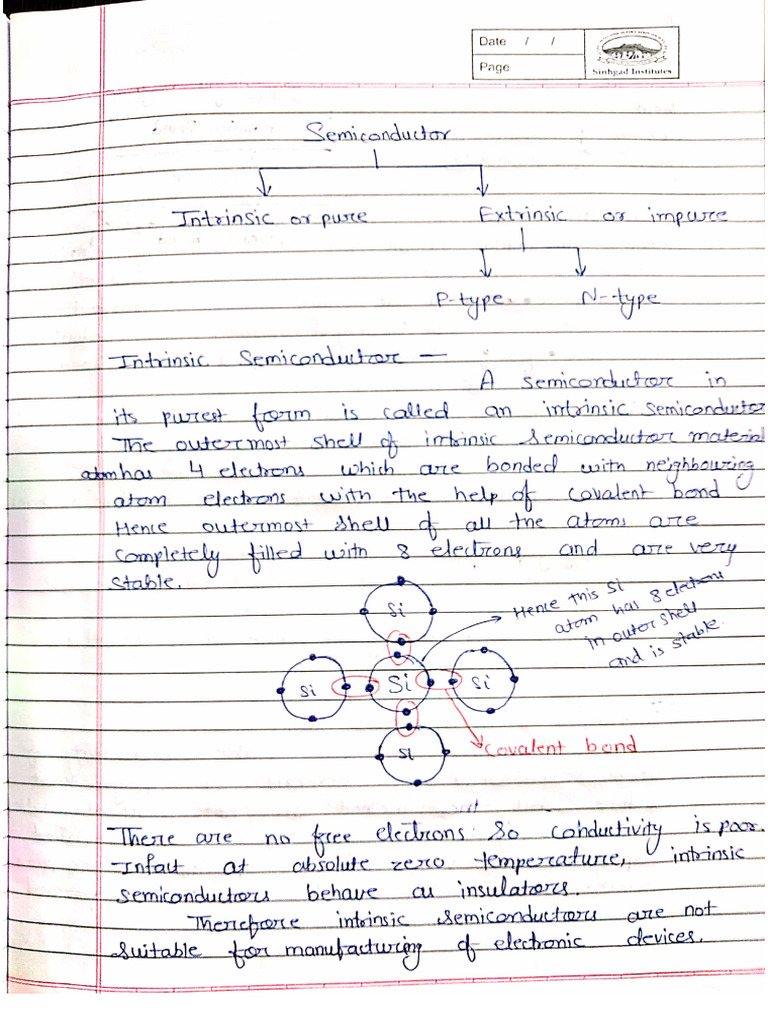 Date / /
Page
Sinhgad Institutes
Semiconductor
Intrinsic or pure Extrinsic or impure
P-type N-type
Intrinsic Semiconductor —
A semiconductor in
its purest form is called an intrinsic semiconductor
The outermost shell of intrinsic semiconductor material
atom has 4 electrons which are bonded with neighbouring
atom electrons with the help of covalent bond
Hence outermost shell of all the atoms are
completely filled with 8 electrons and are very
stable.
Si
Hence this Si
atom has 8 electrons
in outer shell
and is stable.
Si Si Si
Si
Covalent bond
There are no free electrons so conductivity is poor.
Infact at absolute zero temperature, intrinsic
semiconductors behave as insulators.
Therefore intrinsic semiconductors are not
suitable for manufacturing of electronic devices.